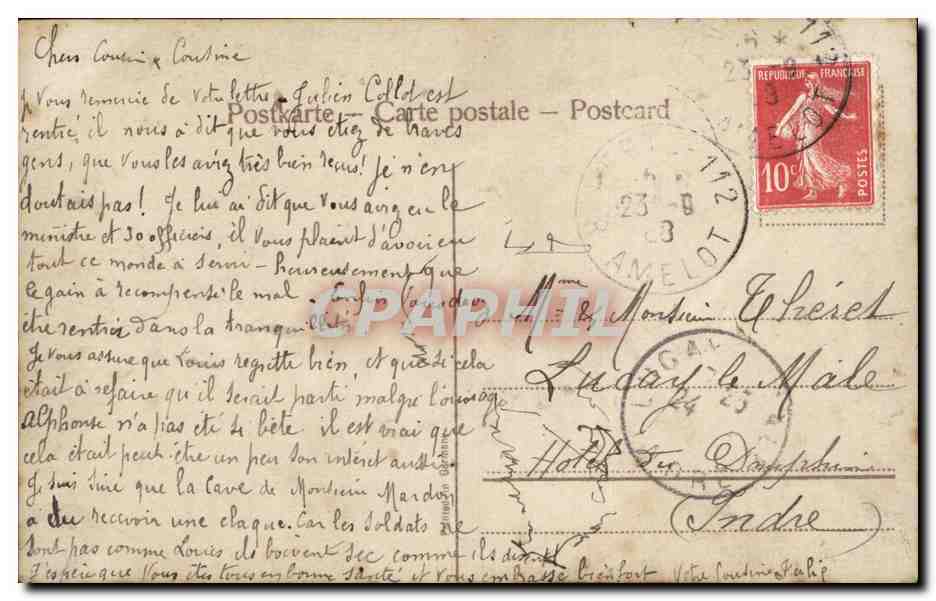 Chers Cousin & Cousine
Je vous remercie de votre lettre - Julien Collot est
rentré il nous a dit que vous étiez de braves
gens, que vous les aviez très bien reçus! Je n'en
doutais pas! Je lui ai dit que vous aviez eu le
ministre et 30 officiers, il vous plaint d'avoir eu
tout ce monde à servir - heureusement que
le gain à récompensé le mal. Enfin vous devez
être rentrés dans la tranquillité
Je vous assure que Louis regrette bien, et que si cela
était à refaire qu'il serait parti malgré l'ouvrage
Alphonse n'a pas été si bête il est vrai que
cela était peut-être un peu son intérêt aussi.
Je suis sûre que la Cave de Monsieur Mardon
a du recevoir une claque. Car les soldats ne
sont pas comme Louis ils boivent sec comme ils disent
J'espère que vous êtes tous en bonne santé et vous embrasse bien fort votre Cousine
Postkarte - Carte postale - Postcard
RÉPUBLIQUE FRANÇAISE
10c
POSTES
112
23 - 9
AMELOT
Mme & Monsieur Théret
Luçay le Male
Hotel du Dauphin
Indre
24
CPAPHIL